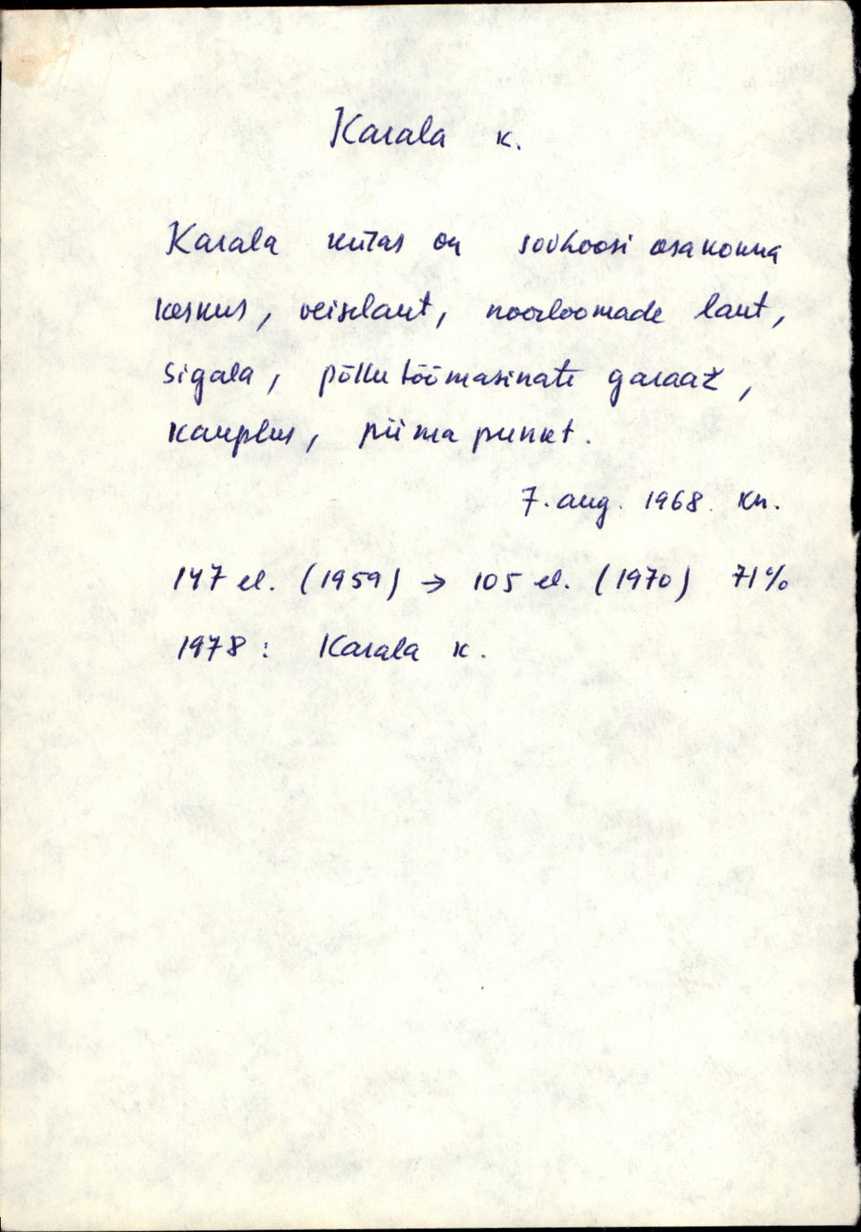 Karala k.
Karala külas on sovhoosi osakonna
keskus, veiselaut, noorloomade laut,
sigala, põllutöömasinate garaaž,
kauplus, piimapunkt.
7. aug. 1968. KN.
147 el. (1959) → 105 el. (1970) 71%
1978: Karala k.